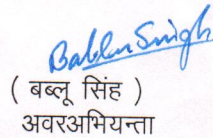 Bablu Singh
( बब्लू सिंह )
अवरअभियन्ता